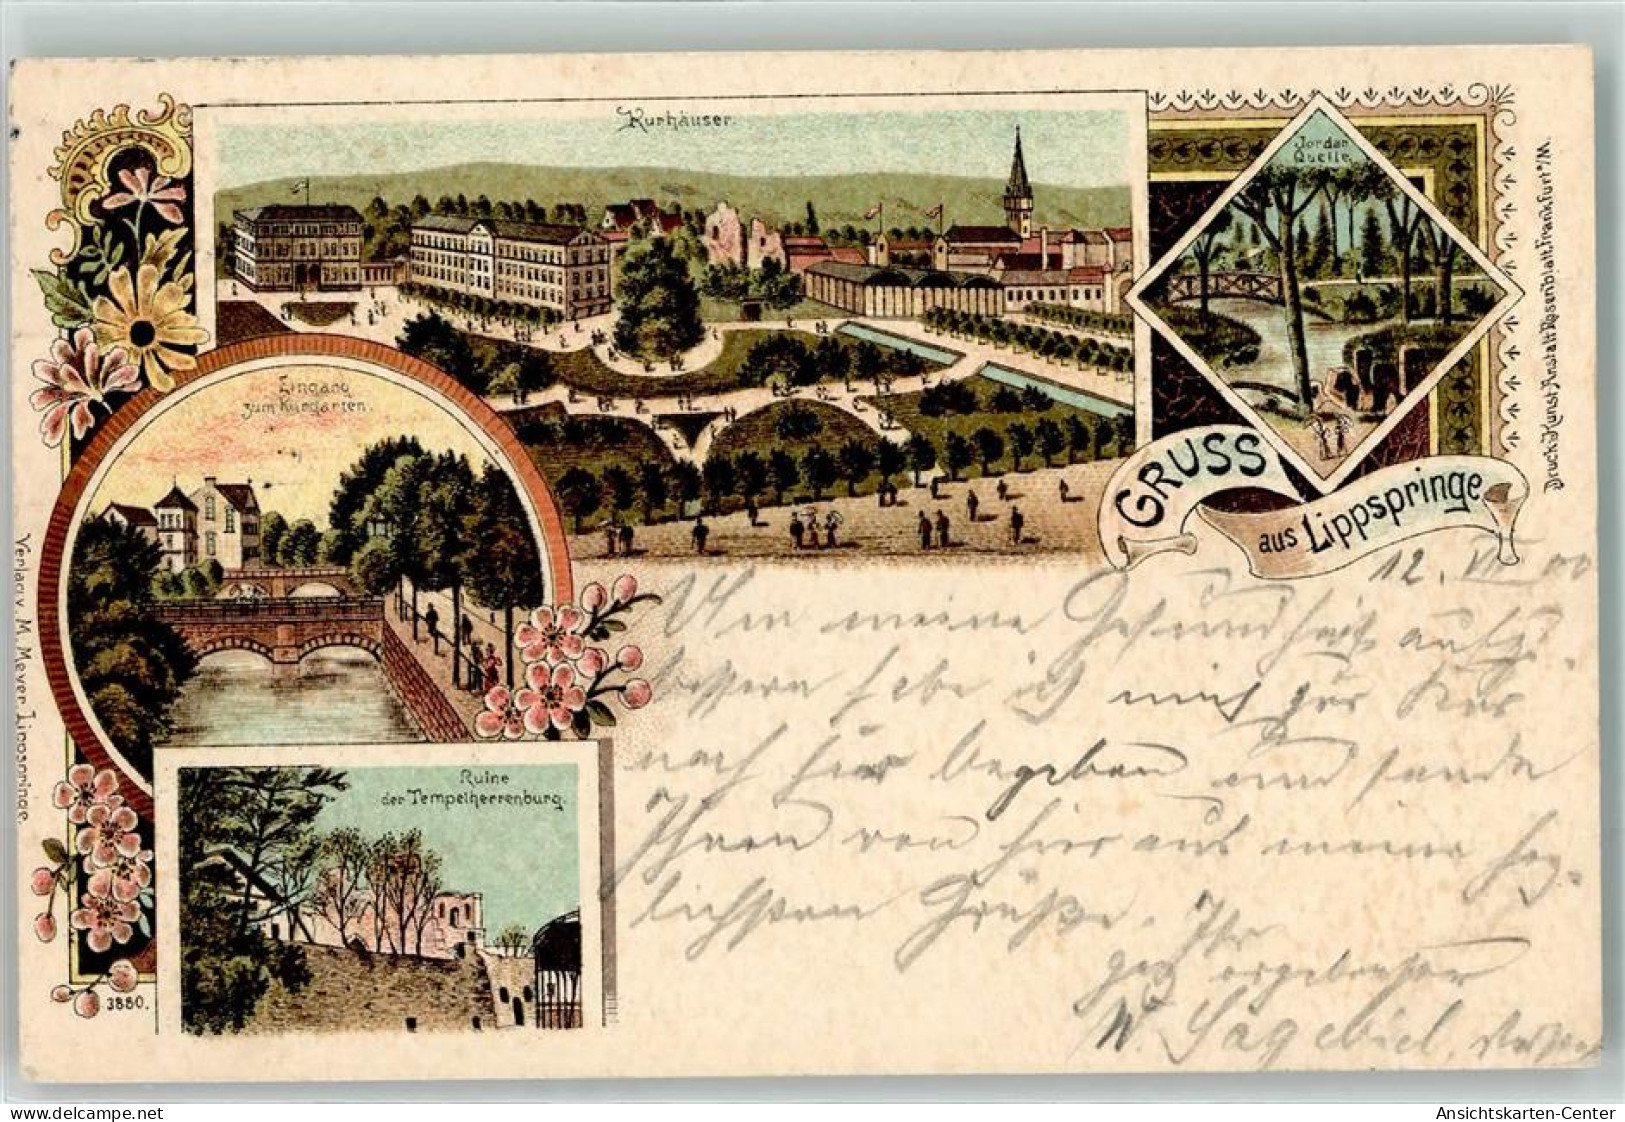 Kurhäuser.
Jordan
Quelle
Eingang
zum Kurgarten.
GRUSS
aus Lippspringe
Ruine
der Tempelherrenburg.
3880.
Verlag v. M. Meyer Lippspringe.
Druck Kunst Anstalt Rosenblatt, Frankfurt a/M.
12. VII 00
Um meine Gesundheit aufzu-
bessern habe ich mich zur Kur
nach hier begeben und sende
Ihnen von hier aus meine herz-
lichsten Grüße. Ihr
ganz ergebenster
W. Sagebiel,
delcampe.net
Ansichtskarten-Center